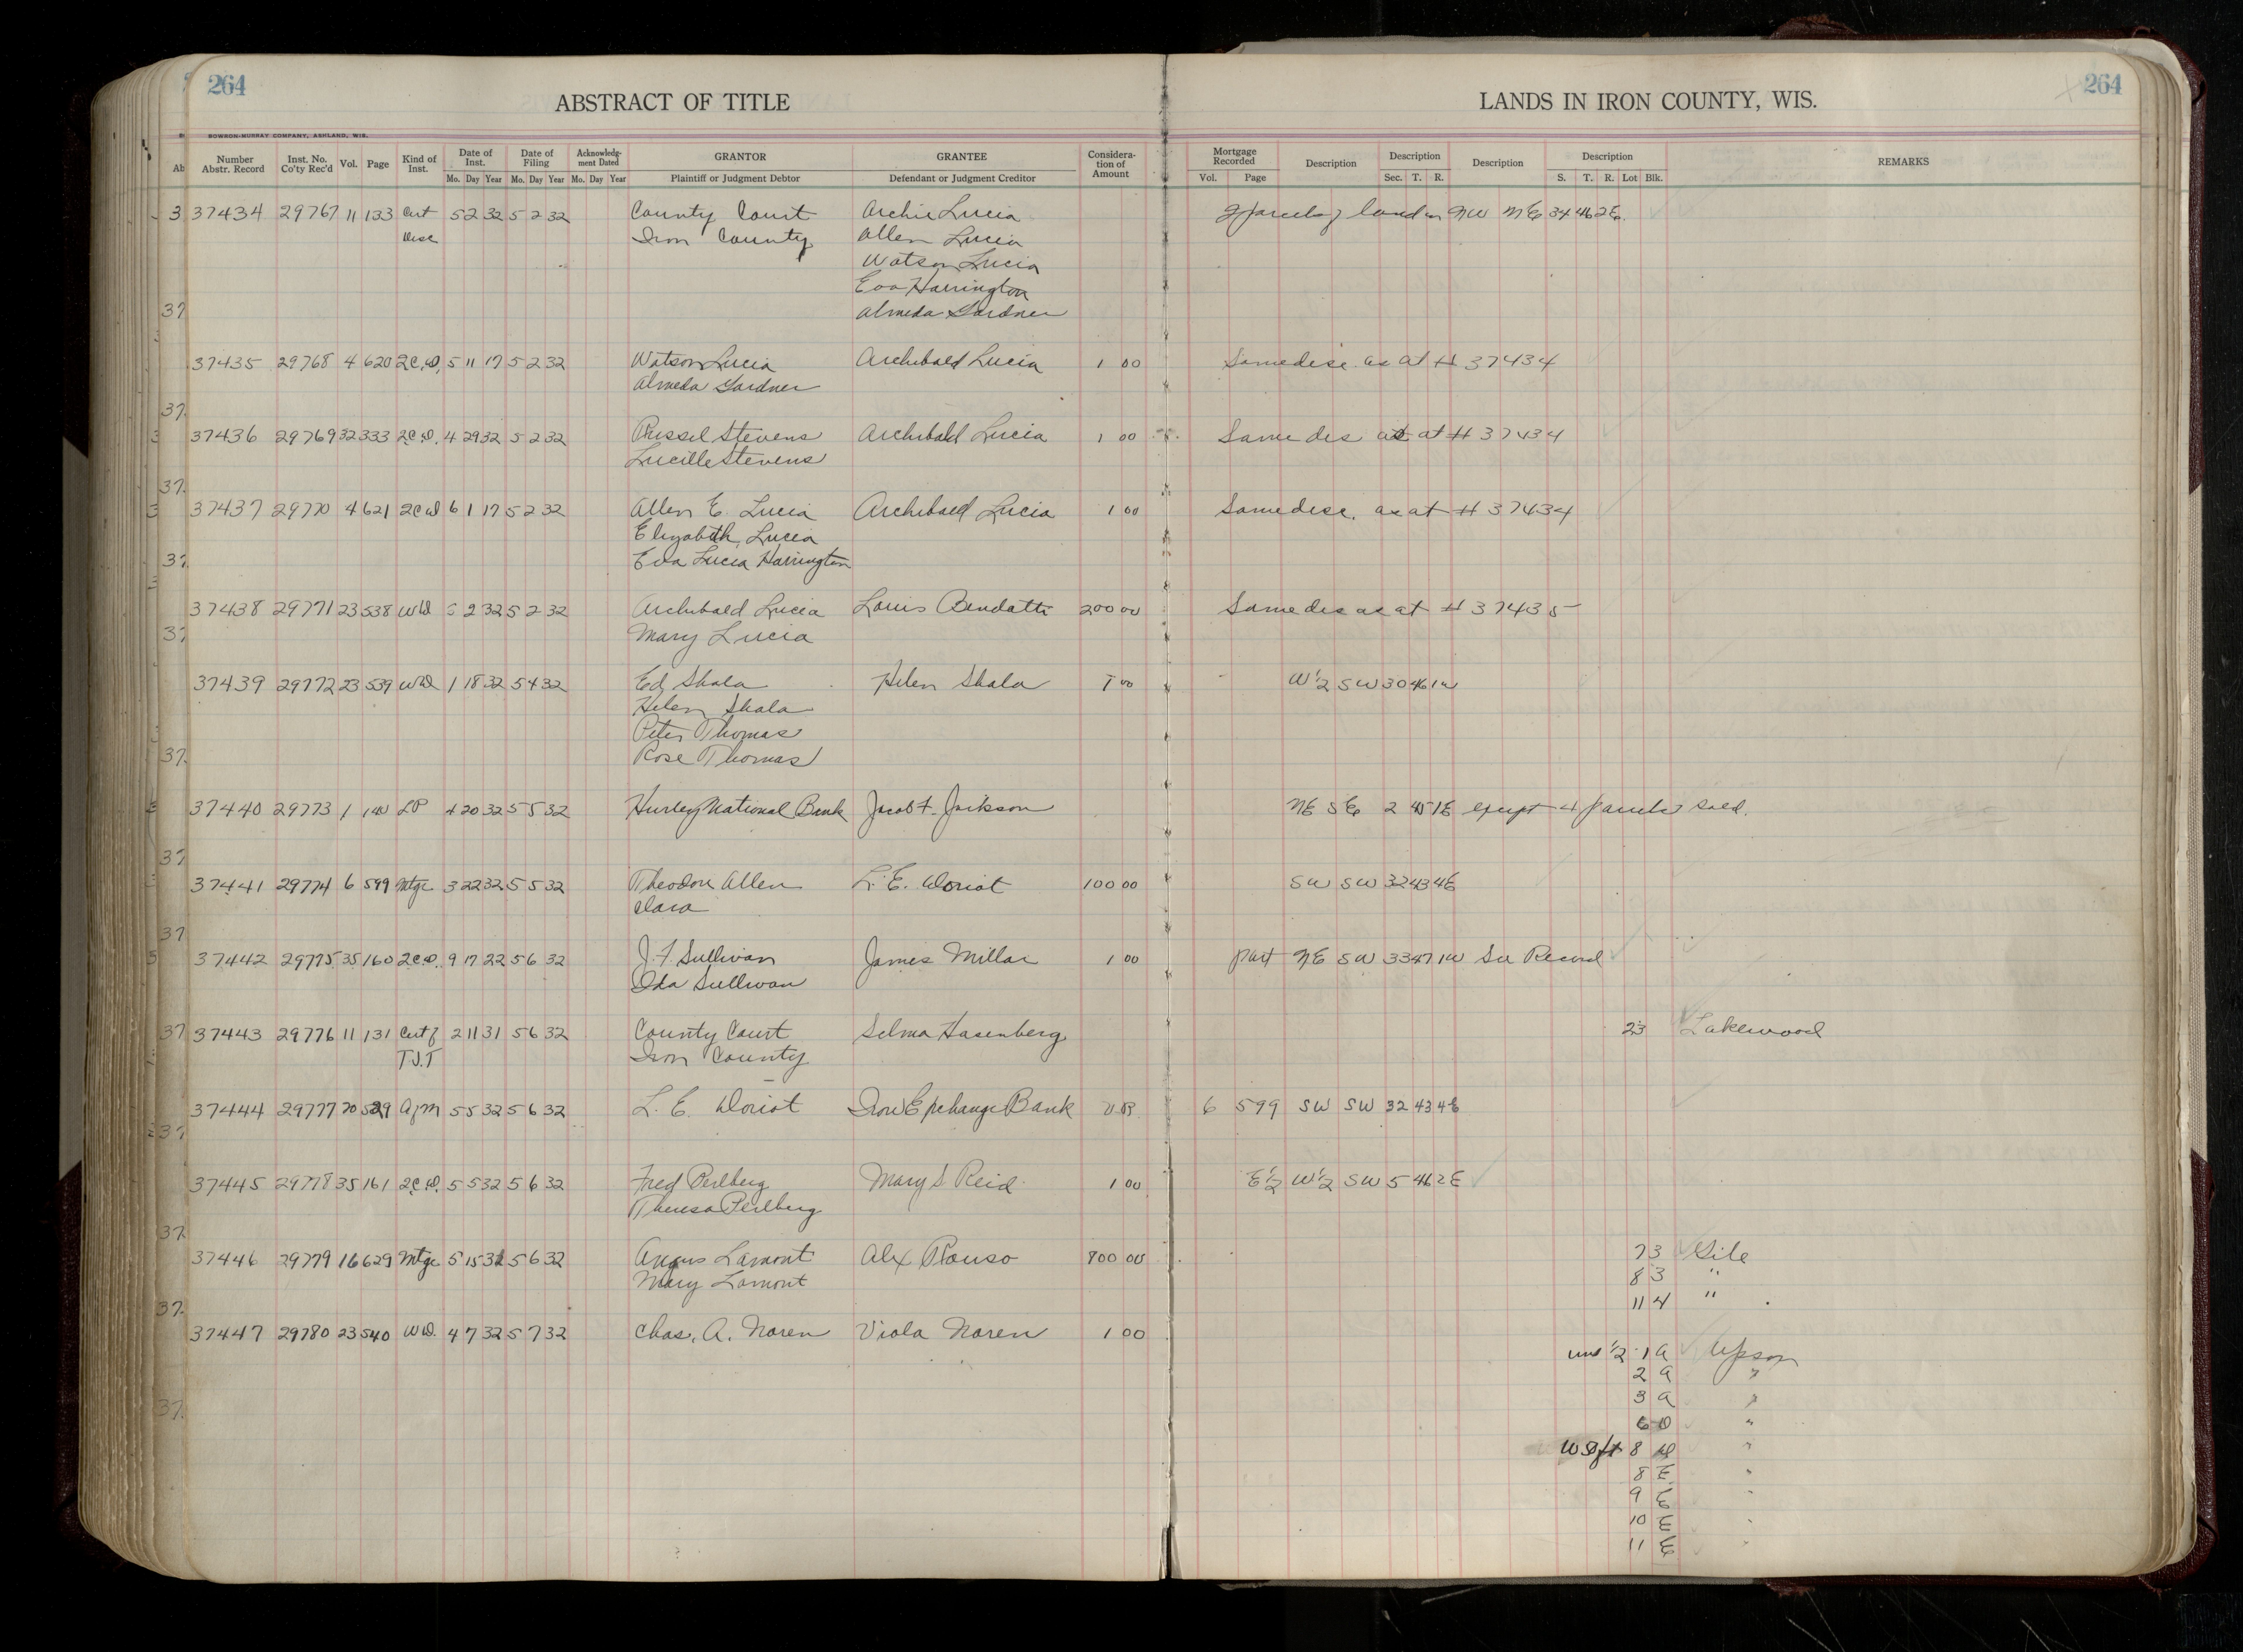 264
ABSTRACT OF TITLE
LANDS IN IRON COUNTY, WIS.
264
BOWRON-MURRAY COMPANY, ASHLAND, WIS.
Number Abstr. Record Inst. No. Co'ty Rec'd Vol. Page Kind of Inst. Date of Inst. Date of Filing Acknowledgment Dated GRANTOR GRANTEE Consideration of Amount Mortgage Recorded Description Description Description Description REMARKS
Mo. Day Year Mo. Day Year Mo. Day Year Plaintiff or Judgment Debtor Defendant or Judgment Creditor Vol. Page Sec. T. R. S. T. R. Lot Blk.
37434 29767 11 133 Cert 5 2 32 5 2 32 County Court Archie Lucia parcels of land in NW NE 34 46 2E.
Desc Iron County Allen Lucia
Watson Lucia
Eva Harrington
Almeda Gardner
37435 29768 4 620 2C.D. 5 11 17 5 2 32 Watson Lucia Archibald Lucia 1 00 Same desc. as at # 37434
Almeda Gardner
37436 29769 32 333 2C.D. 4 29 32 5 2 32 Russel Stevens Archibald Lucia 1 00 Same des as at # 37434
Lucille Stevens
37437 29770 4 621 2CD 6 1 17 5 2 32 Allen E. Lucia Archibald Lucia 1 00 Same desc. as at # 37434
Elizabeth Lucia
Eva Lucia Harrington
37438 29771 23 538 WD 5 2 32 5 2 32 Archibald Lucia Louis 200 00 Same des as at # 37435
Mary Lucia
37439 29772 23 539 WD 1 18 32 5 4 32 Ed Skala Helen Skala 1 00 W 1/2 SW 30 46 1W
Helen Skala
Peter Thomas
Rose Thomas
37440 29773 1 140 LP 4 20 32 5 5 32 Hurley National Bank Jacob F. Jackson NE SE 2 45 1E except 4 parcels sold.
37441 29774 6 599 Mtge 3 22 32 5 5 32 Theodore Allen L. E. Doriot 100 00 SW SW 32 43 4E
Clara
37442 29775 35 160 2C.D. 9 17 22 5 6 32 J. F. Sullivan James Millar 1 00 part NE SW 33 47 1W See Record
Ida Sullivan
37443 29776 11 131 Cert of 2 11 31 5 6 32 County Court Selma Hasenberg 23 Lakewood
T.J.T Iron County
37444 29777 20 529 AofM 5 5 32 5 6 32 L. E. Doriot Iron Exchange Bank V.R. 6 599 SW SW 32 43 4E
37445 29778 35 161 2C.D. 5 5 32 5 6 32 Fred Perlberg Mary S Reid 1 00 E 1/2 W 1/2 SW 5 46 2E
Theresa Perlberg
37446 29779 16 629 Mtge 5 15 31 5 6 32 Angus Lamont Alex 800 00 7 3 Gile
Mary Lamont 8 3 "
11 4 "
37447 29780 23 540 WD. 4 7 32 5 7 32 Chas. A. Noren Viola Noren 1 00
und 1/2 1 A Upson
2 A "
3 A "
6 D "
8 "
8 E "
9 E "
10 E "
11 E "